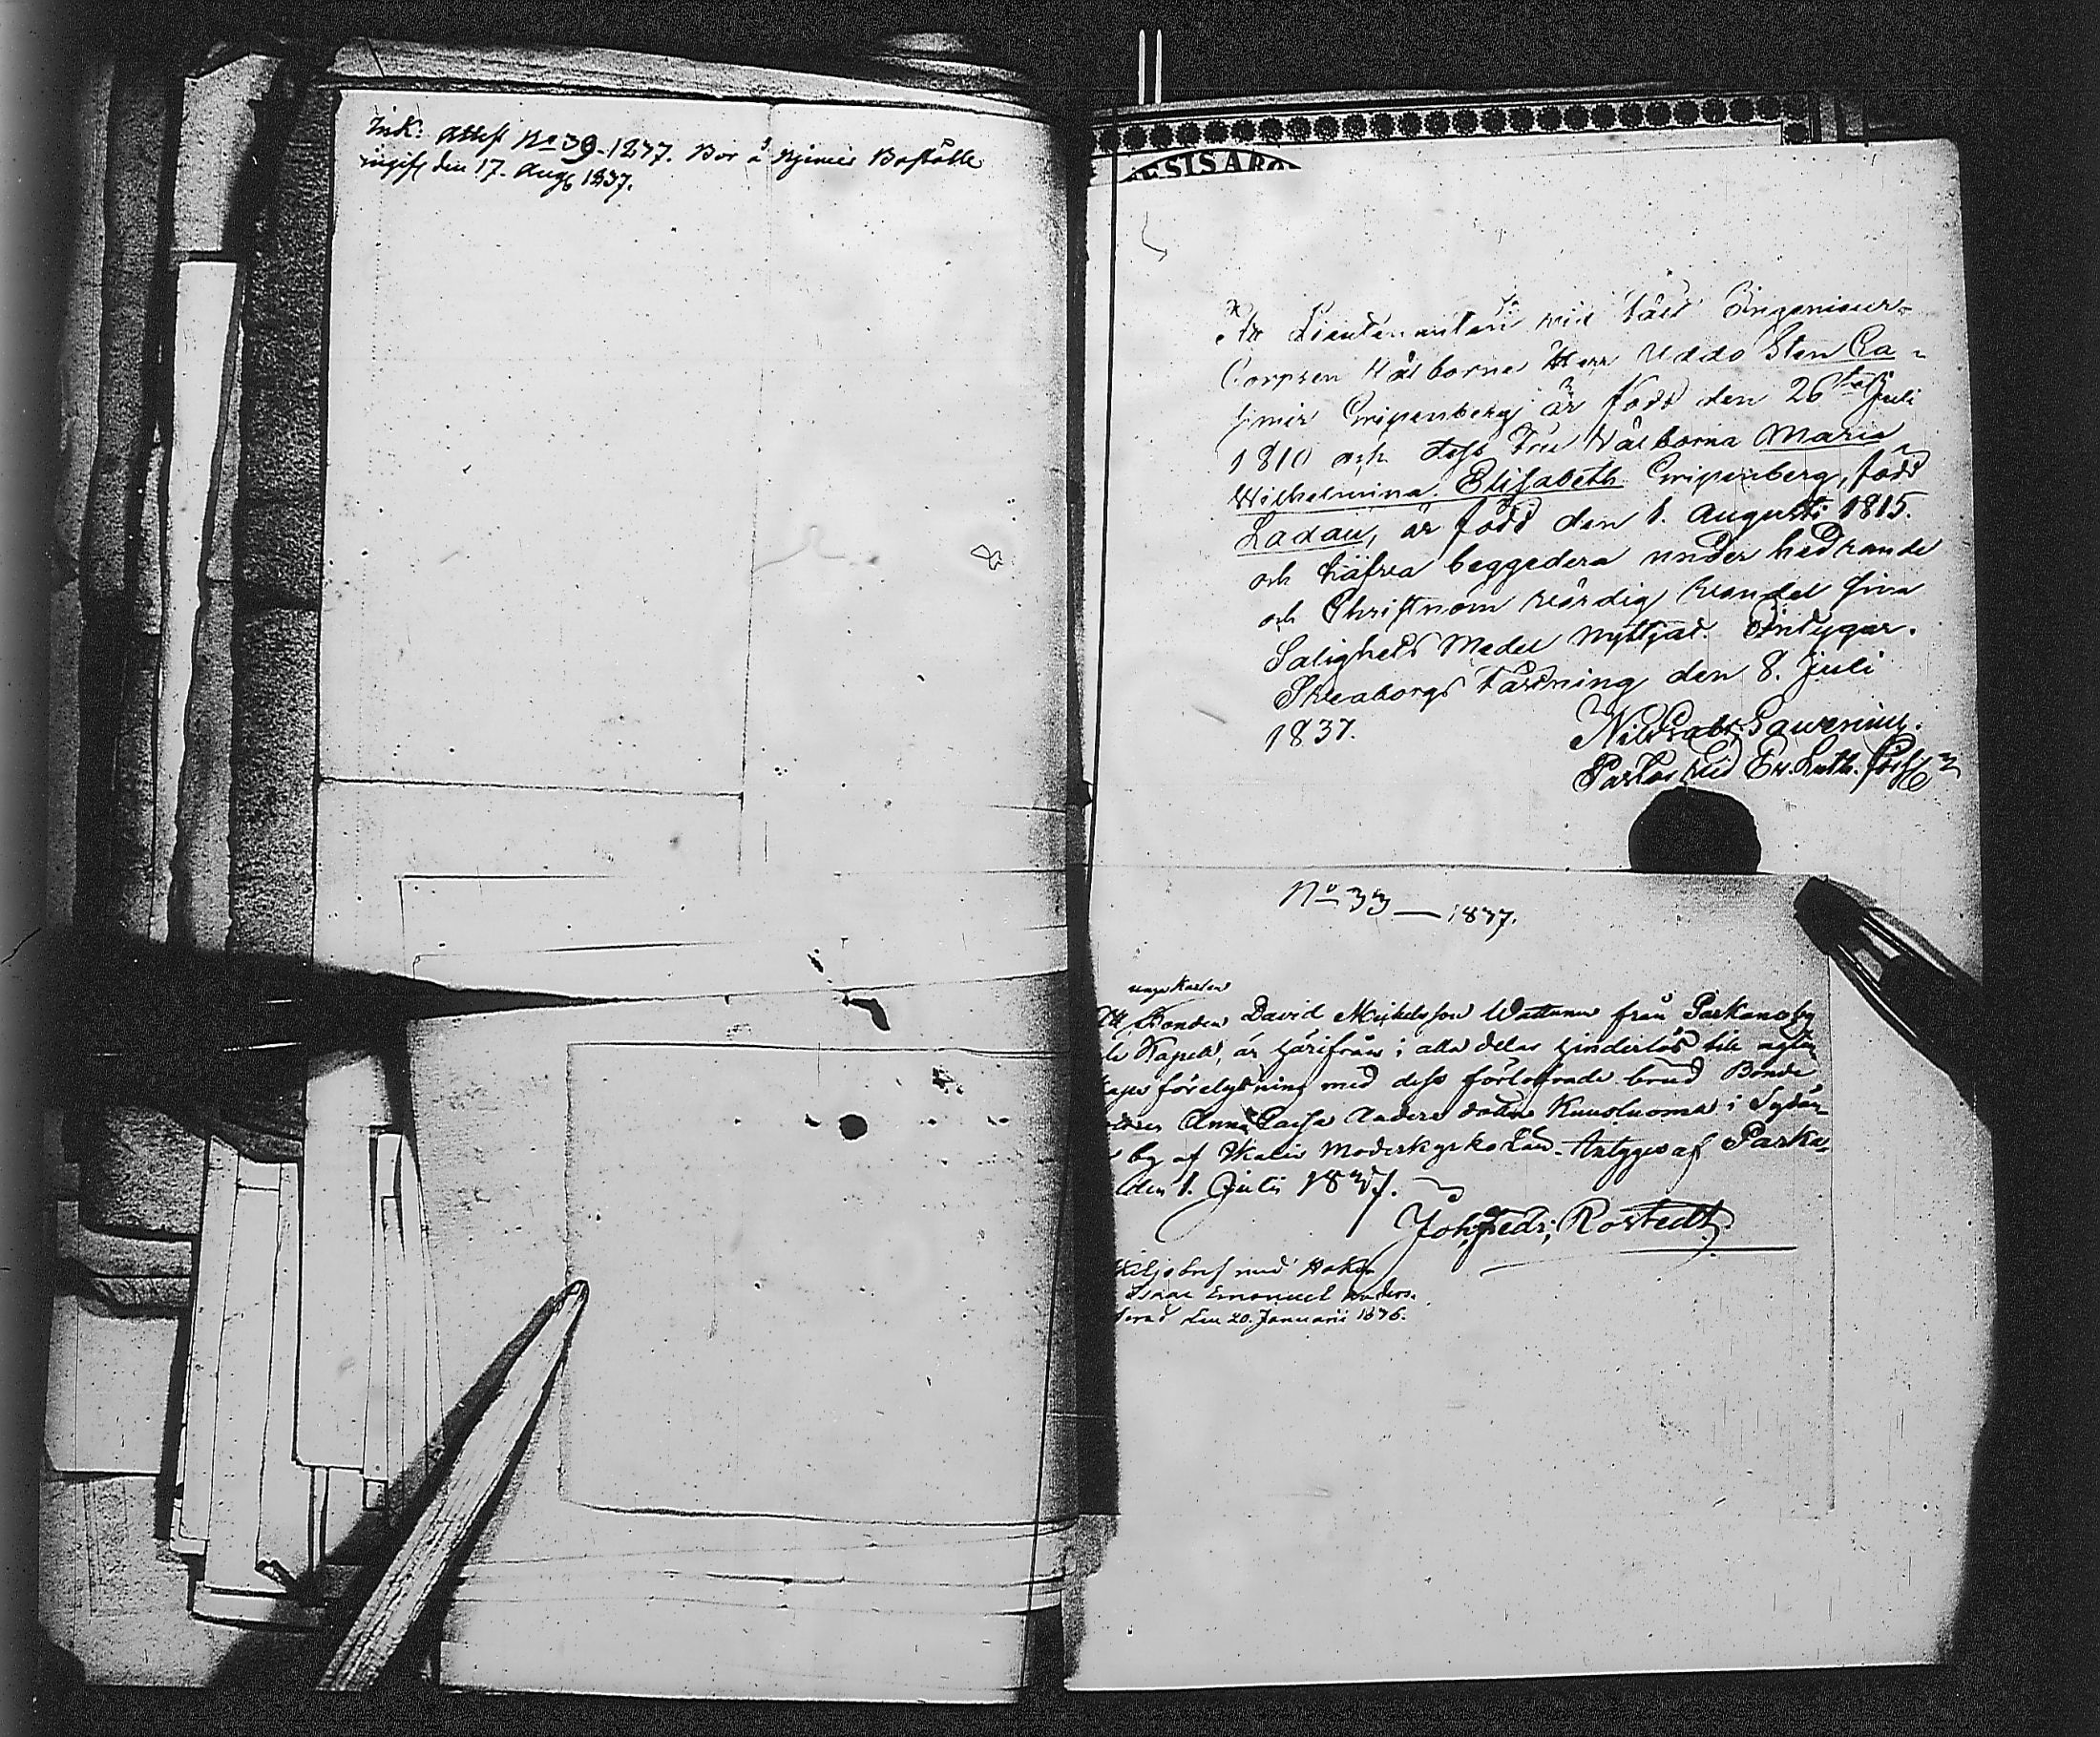 Ink: Attest No 39-1837. Bor å Boställe
ingift den 17. Aug 1837.
ESIS ABO
Att Lieutenanten vid Ingenieur-
Corpsen Välborne Herr Uddo Sten Ca-
simir Gripenberg är född den 26 Juli
1810 och dess Fru Välborna Maria
Wilhelmina Elisabeth Gripenberg, född
Ladau, är född den 1. Augusti 1815.
och hafva beggedera under hedrande
och Christnom värdig vandel sina
Salighets Medel nyttjat. Intygar.
Sveaborgs Fästning den 8. Juli
1837.
Nils Gabr. Lavenius.
Pastor vid Ev. Luth.
No 33 — 1837.
unga Karlen
Att Bonden David Michelsson Wattunen från Parkano by
Kapell, är härifrån i alla delar hinderlös till
förelysning med dess förlofvade brud Bonde
Anna Caisa Anders dotter i Sydän-
by af Ikalis Moderkyrko Intygas af Parka-
den 1. Julii 1837.
Joh. Fedr. Rostedt
med
Isaac Emanuel Anders.
den 20. Januarii 1836.